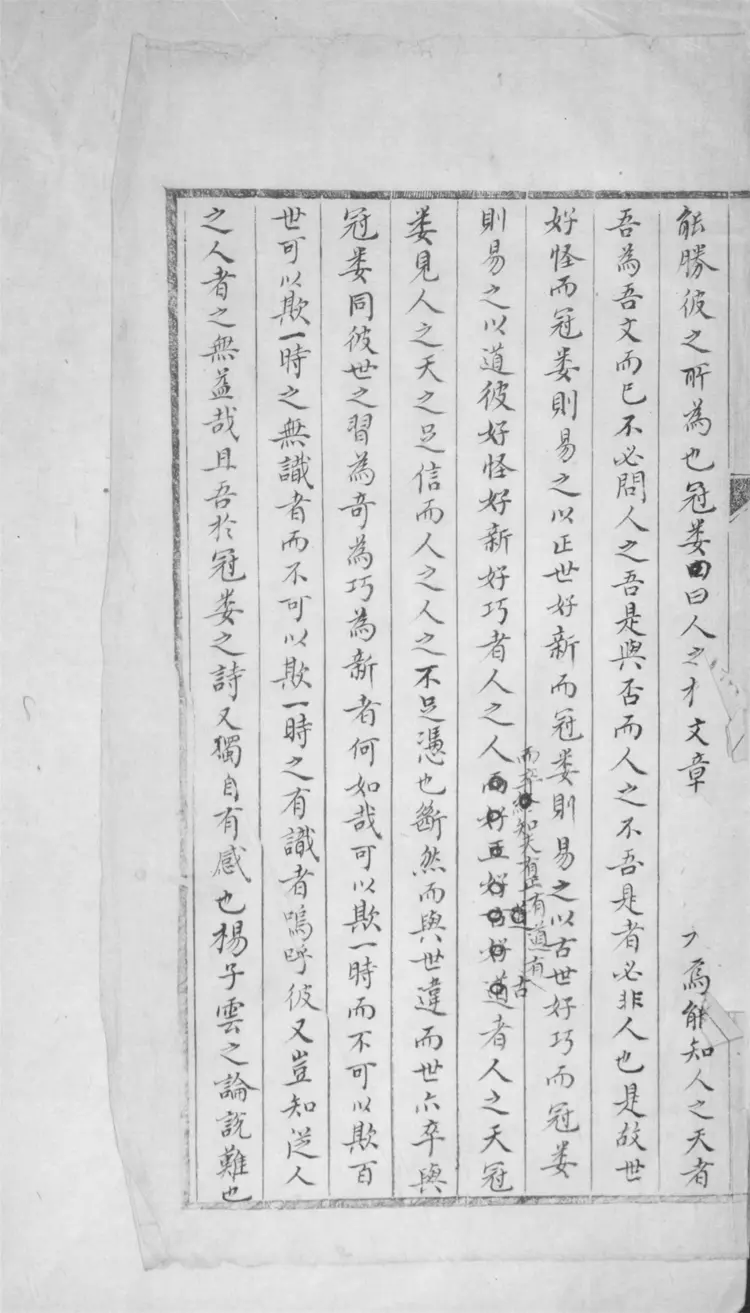 能勝彼之所為也冠婁曰人之才文章 焉能知人之天者
吾為吾文而已不必問人之吾是與否而人之不吾是者必非人也是故世
好怪而冠婁則易之以正世好新而冠婁則易之以古世好巧而冠婁
而卒知夫有正有道有古
則易之以道彼好怪好新好巧者人之人而好正好古好道者人之天冠
婁見人之天之足信而人之人之不足憑也斷然而與世違而世亦卒與
冠婁同彼世之習為奇為巧為新者何如哉可以欺一時而不可以欺百
世可以欺一時之無識者而不可以欺一時之有識者嗚呼彼又豈知從人
之人者之無益哉且吾於冠婁之詩又獨自有感也楊子雲之論說難也